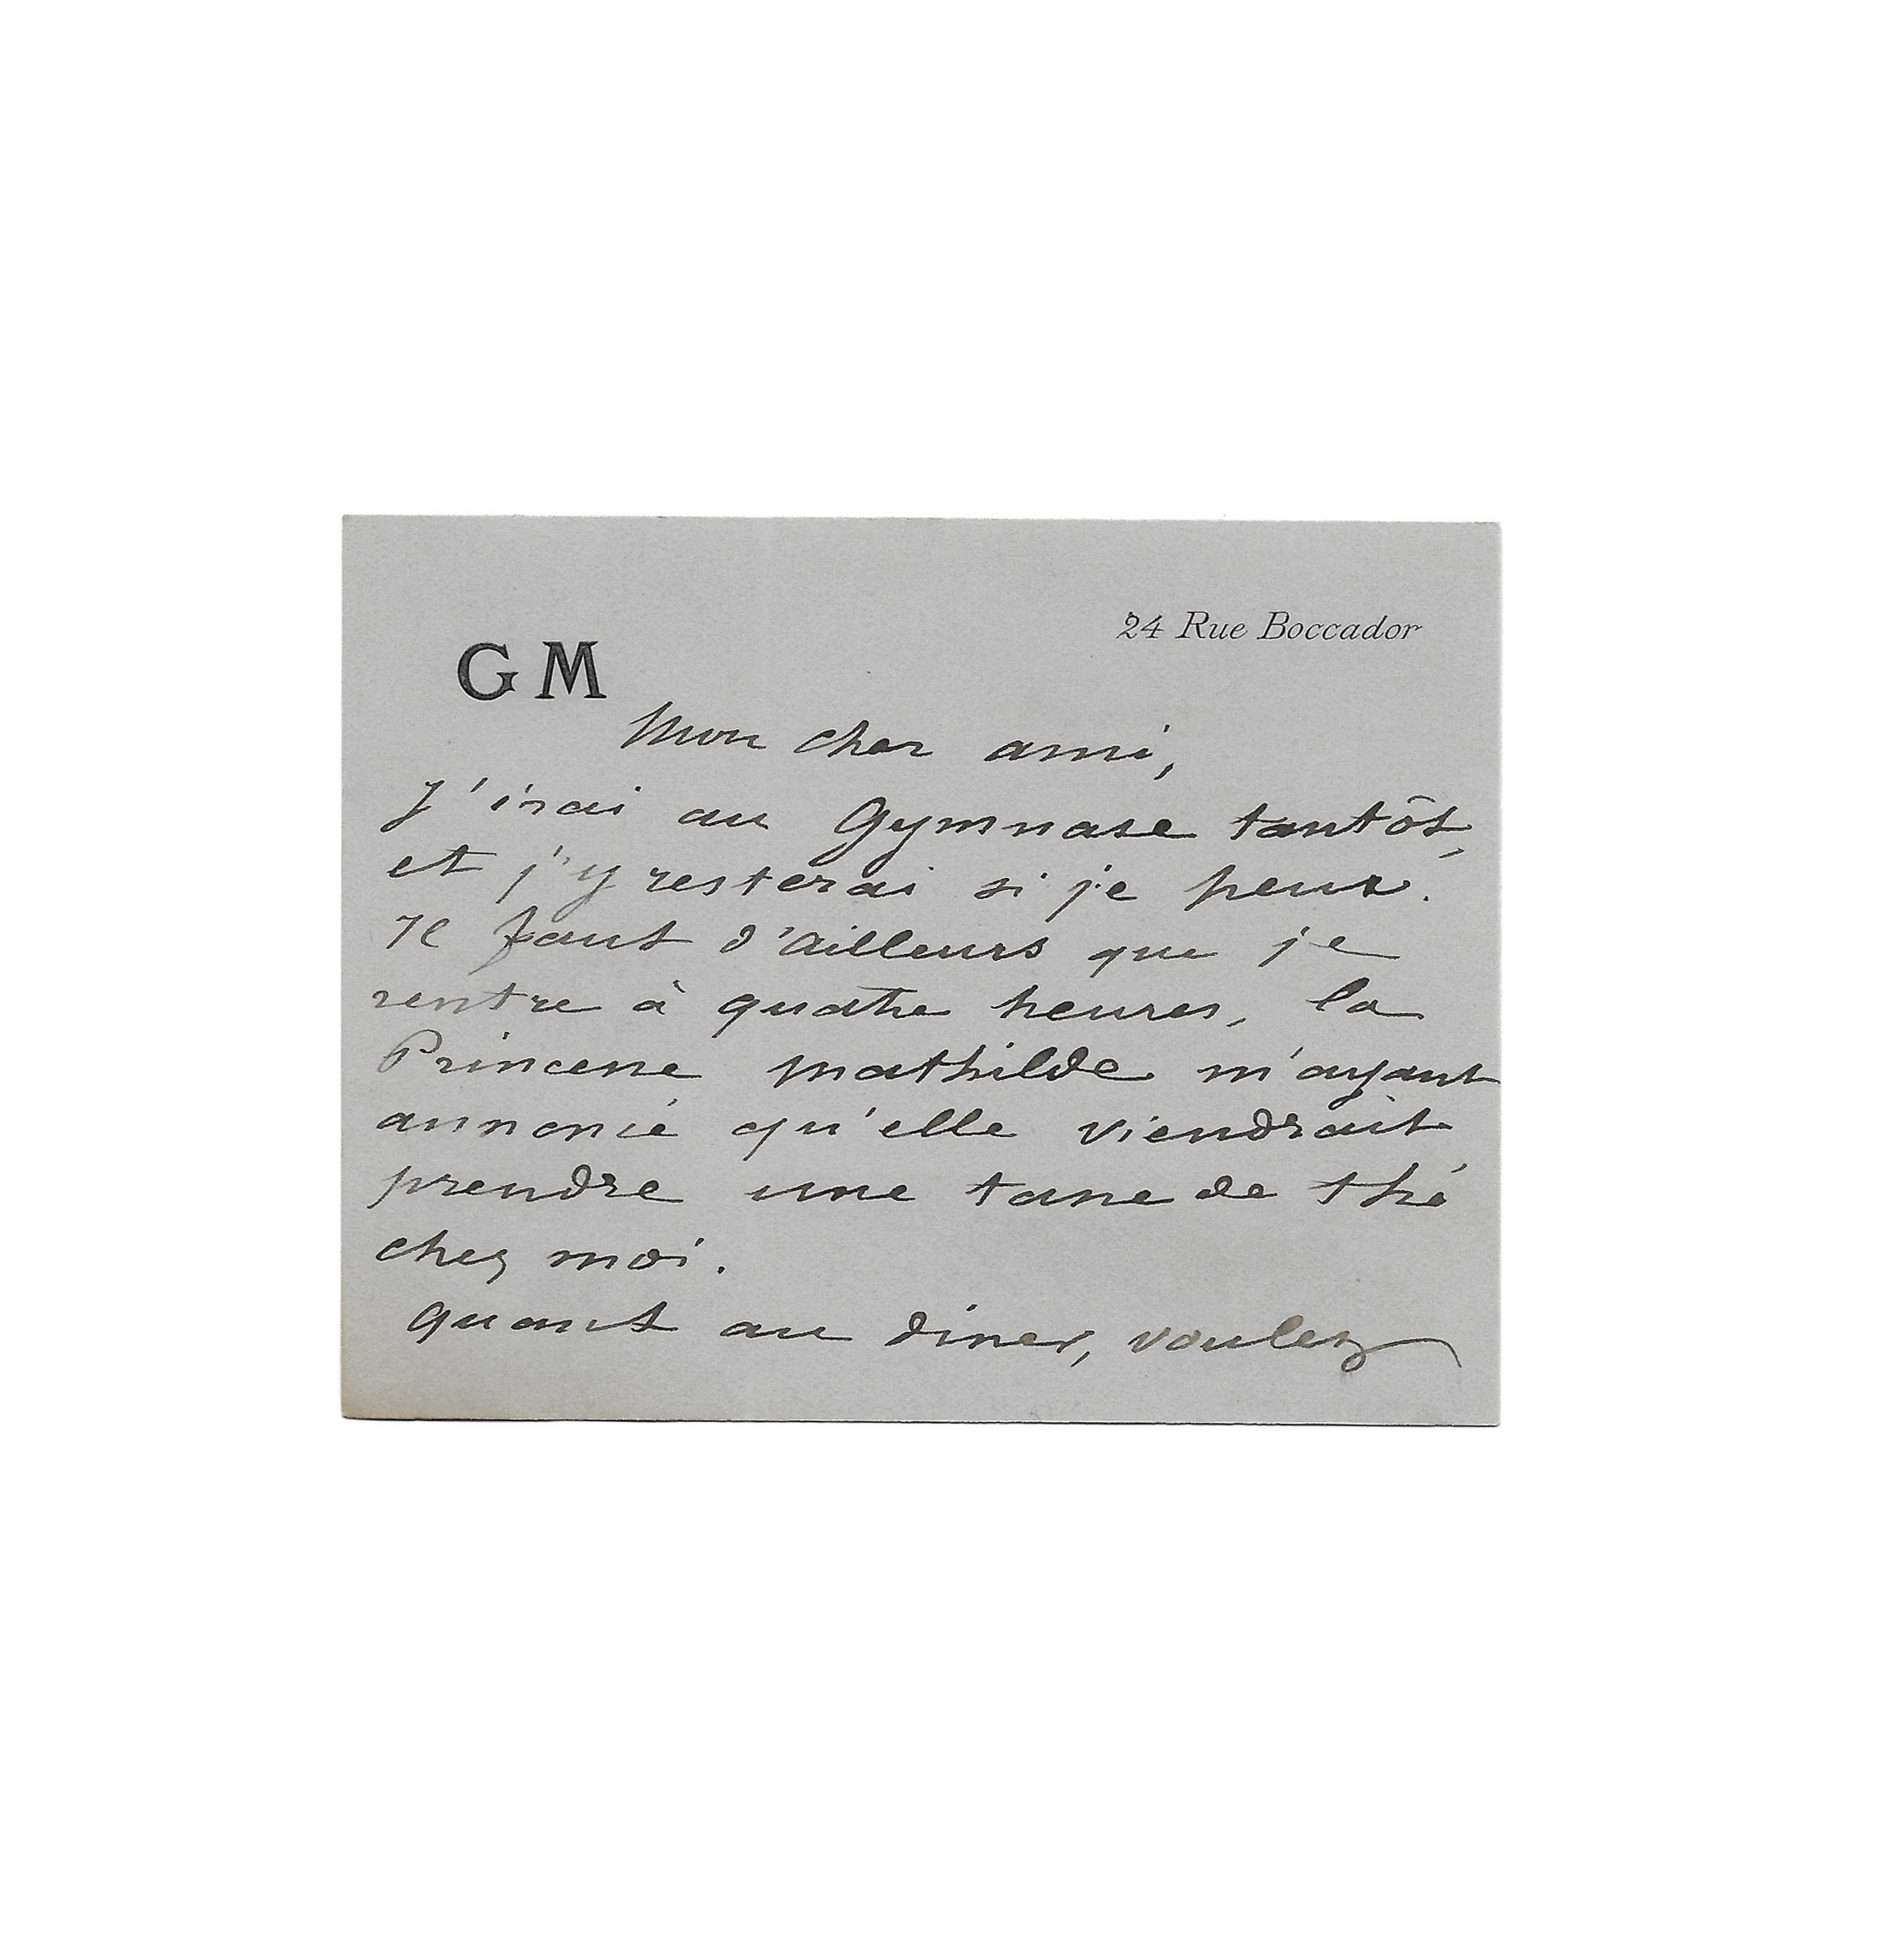 24 Rue Boccador
GM
Mon cher ami,
J'irai au Gymnase tantôt,
et j'y resterai si je peux.
Il faut d'ailleurs que je
rentre à quatre heures, la
Princesse Mathilde m'ayant
annoncé qu'elle viendrait
prendre une tasse de thé
chez moi.
Quant au diner, voulez